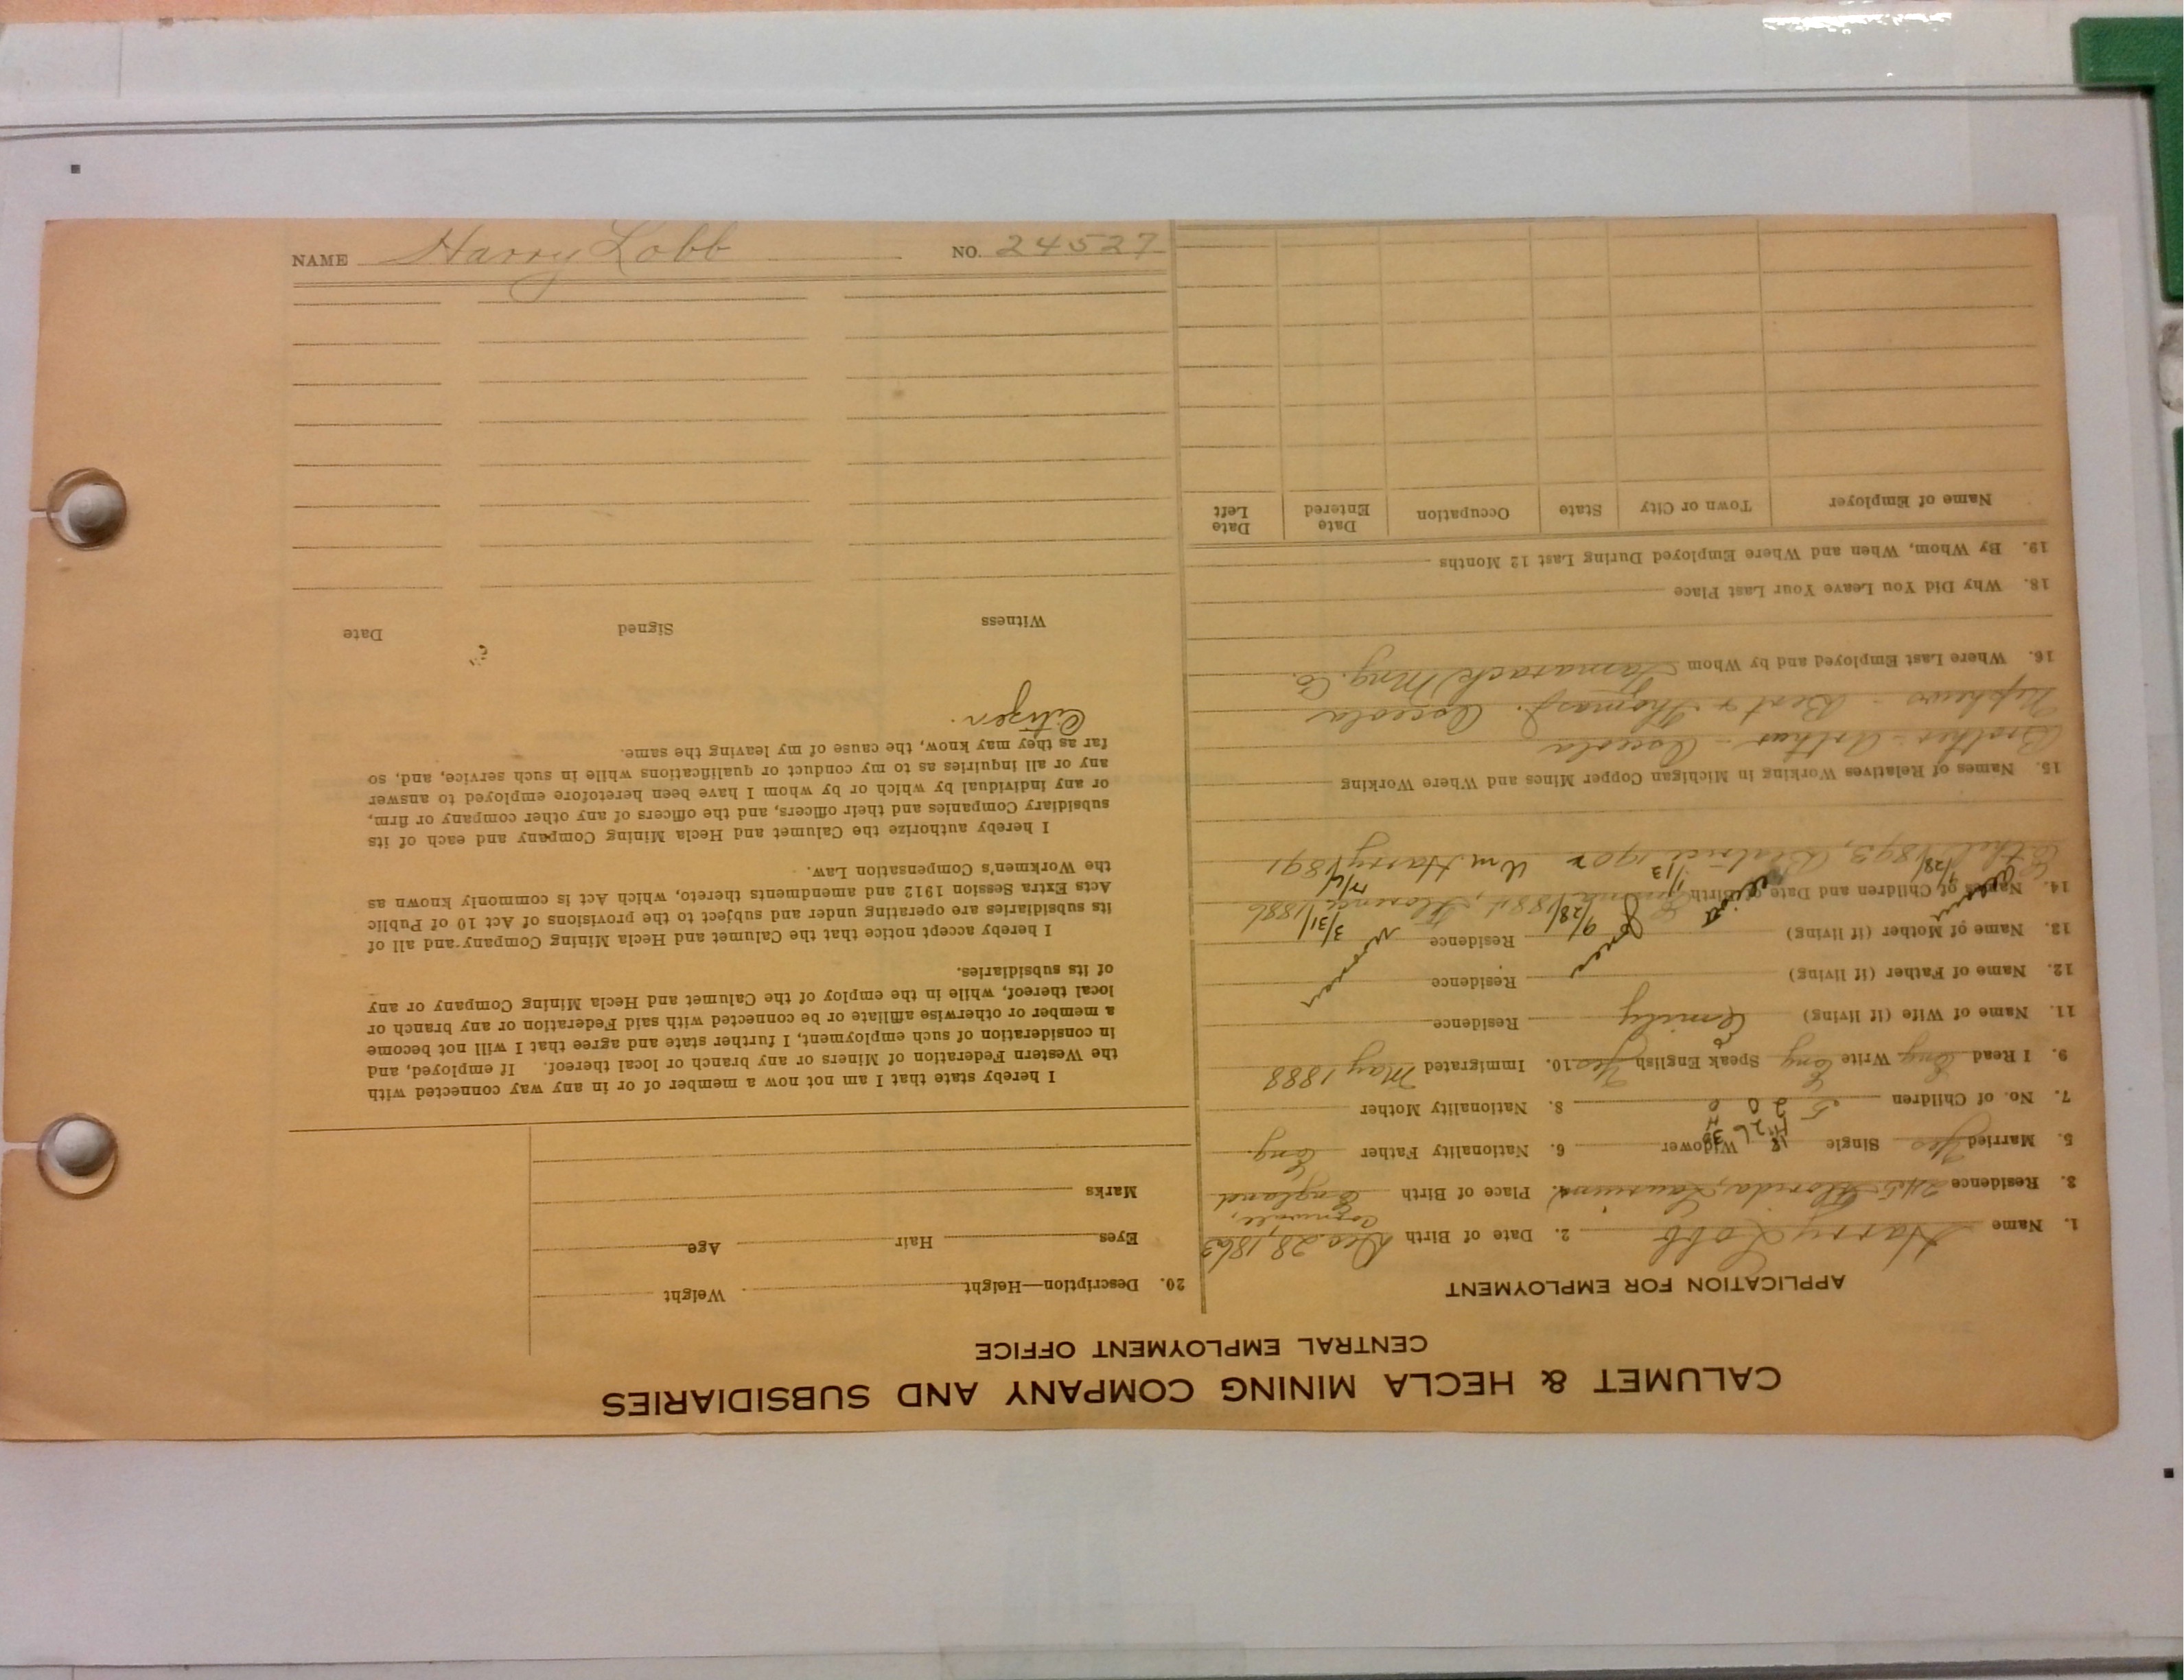 CALUMET & HECLA MINING COMPANY AND SUBSIDIARIES
CENTRAL EMPLOYMENT OFFICE
APPLICATION FOR EMPLOYMENT
1. Name Harry Lobb 2. Date of Birth Dec 28, 1863
3. Residence 245 Florida, Laurium 4. Place of Birth Cornwall, England
5. Married Yes Single Widower 6. Nationality Father Eng.
7. No. of Children 5 8. Nationality Mother
9. I Read Eng Write Eng Speak English Yes 10. Immigrated May 1888
11. Name of Wife (if living) Emily Residence
12. Name of Father (if living) Residence
13. Name of Mother (if living) Residence
14. Names of Children and Date of Birth 9/28/1884, Florence 3/31/1886
Ethel 1893, Beatrice 1902 Wm Harry 1891
15. Names of Relatives Working in Michigan Copper Mines and Where Working
Brother - Arthur - Osceola
Nephews - Bert & Thomas J. Osceola
16. Where Last Employed and by Whom Tamarack Mng. Co.
18. Why Did You Leave Your Last Place
19. By Whom, When and Where Employed During Last 12 Months
Name of Employer Town or City State Occupation Date Entered Date Left
20. Description—Height Weight
Eyes Hair Age
Marks
I hereby state that I am not now a member of or in any way connected with
the Western Federation of Miners or any branch or local thereof. If employed, and
in consideration of such employment, I further state and agree that I will not become
a member or otherwise affiliate or be connected with said Federation or any branch or
local thereof, while in the employ of the Calumet and Hecla Mining Company or any
of its subsidiaries.
I hereby accept notice that the Calumet and Hecla Mining Company and all of
its subsidiaries are operating under and subject to the provisions of Act 10 of Public
Acts Extra Session 1912 and amendments thereto, which Act is commonly known as
the Workmen's Compensation Law.
I hereby authorize the Calumet and Hecla Mining Company and each of its
subsidiary Companies and their officers, and the officers of any other company or firm,
or any individual by which or by whom I have been heretofore employed to answer
any or all inquiries as to my conduct or qualifications while in such service, and, so
far as they may know, the cause of my leaving the same.
Citizen.
Witness Signed Date
NAME Harry Lobb NO. 24527